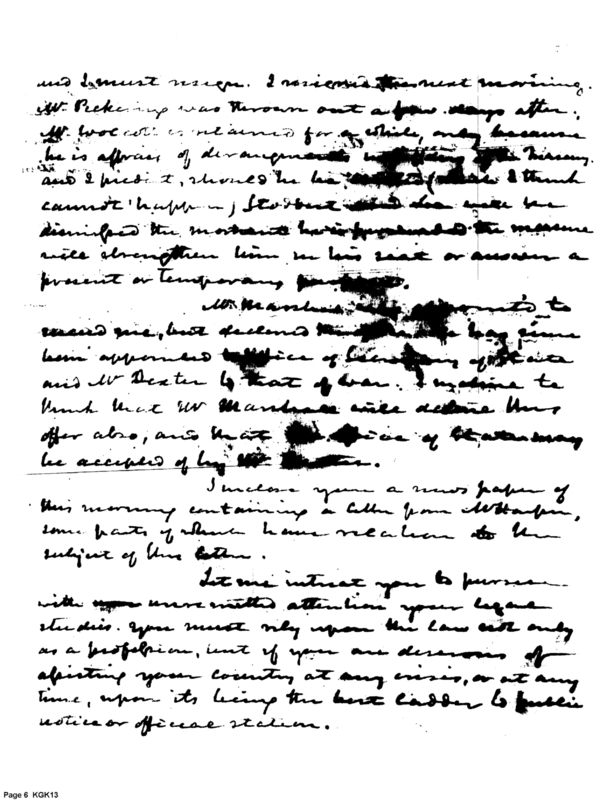 and I must resign. I resigned the next morning.
Mr Pickering was thrown out a few days after.
Mr Wolcott is retained for a while, only because
he is affraid of derangements in the Treasury.
and I predict, should he be I think
cannot happen, Stoddert will be
dismissed the moment he is persuaded the measure
will strengthen him in his seat or answer a
present or temporary purpose.
Mr Marshall was appointed to
succeed me, but declined has since
been appointed to office of Secretary of State
and Mr Dexter to that of War. I incline to
think that Mr Marshall will decline this
offer also, and that the office of State may
be accepted of by Mr Dexter.
I inclose you a news paper of
this morning containing a letter from Mr Harper,
some parts of which have relation to the
subject of this letter.
Let me intreat you to pursue
with unremitted attention your legal
studies. You must rely upon the law not only
as a profession, but if you are desirous of
assisting your country at any crisis, or at any
time, upon its being the best ladder to public
notice or official station.
Page 6 KGK13